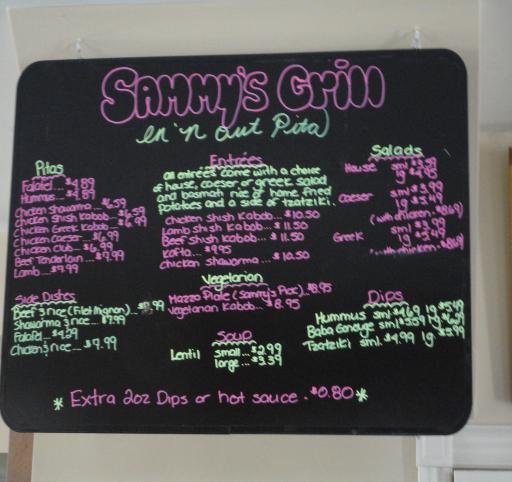 Sammy's Grill
en 'n out Pita
Pitas
Falafel... $4.89
Hummus... $4.89
Chicken Shawarma... $6.59
Chicken Shish Kabob... $6.59
Chicken Greek Kabob... $6.99
Chicken Caeser... $6.99
Chicken Club... $6.99
Beef Tenderloin... $7.99
Lamb... $7.99
Side Dishes
Beef & rice (Filet Mignon)...
Shawarma & rice... $7.99
Falafel... $4.29
Chicken & rice... $7.99
Entrées
all entrées come with a choice
of house, caeser or greek salad
and basmati rice or home fried
potatoes and a side of tzatziki.
Chicken Shish Kabob... $10.50
Lamb Shish Kabob... $11.50
Beef Shish Kabob... $11.50
Kafta... $9.95
Chicken Shawarma... $10.50
Vegetarian
Mazza Plate (Sammy's Pac) $8.95
Vegetarian Kabob... $8.95
Soup
Lentil small... $2.99
large... $3.39
Salads
House sml
lg $4.95
Caeser sml $3.99
lg $5.49
(with chicken. $8.69)
Greek sml $3.99
lg
with chicken. $8.69
Dips
Hummus sml $4.69 lg $5.49
Baba Ganouge sml $3.59 lg
Tzatziki sml. $4.99 lg $5.99
* Extra 2oz Dips or hot sauce. $0.80 *